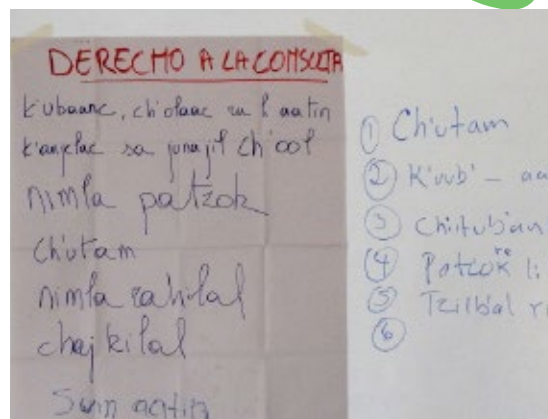 DERECHO A LA CONSULTA
k'ubaanc, ch'olaac
k'anjelac sa junajil ch'ool
nimla patzok
Ch'utam
nimla rahilal
chajkilal
aatin
① Ch'utam
② K'uub' –
③
④ Patzok re li
⑤ Tzilbal
⑥